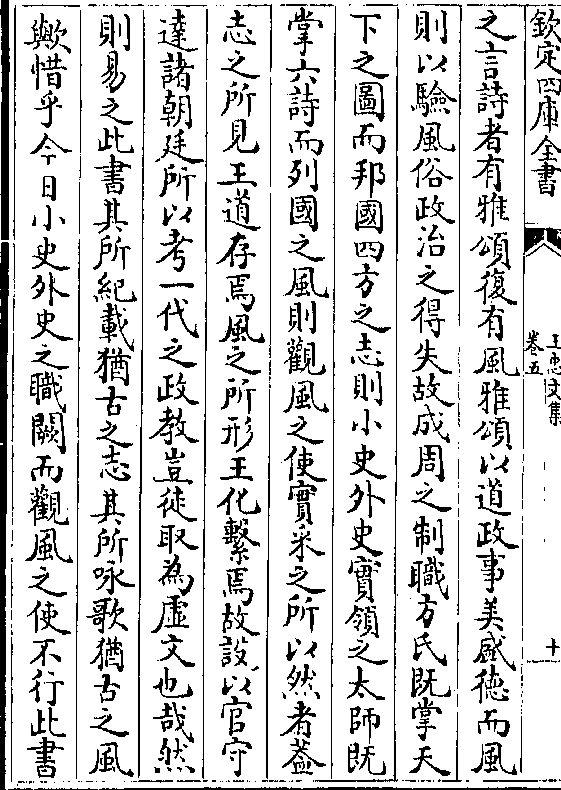 欽定四庫全書
王忠文集
卷五
十
之言詩者有雅頌復有風雅頌以道政事美盛徳而風
則以驗風俗政治之得失故成周之制職方氏既掌天
下之圖而邦國四方之志則小史外史實領之太師既
掌六詩而列國之風則觀風之使實采之所以然者葢
志之所見王道存焉風之所形王化繫焉故設以官守
達諸朝廷所以考一代之政教豈徒取為虚文也哉然
則易之此書其所紀載猶古之志其所咏歌猶古之風
歟惜乎今日小史外史之職闕而觀風之使不行此書